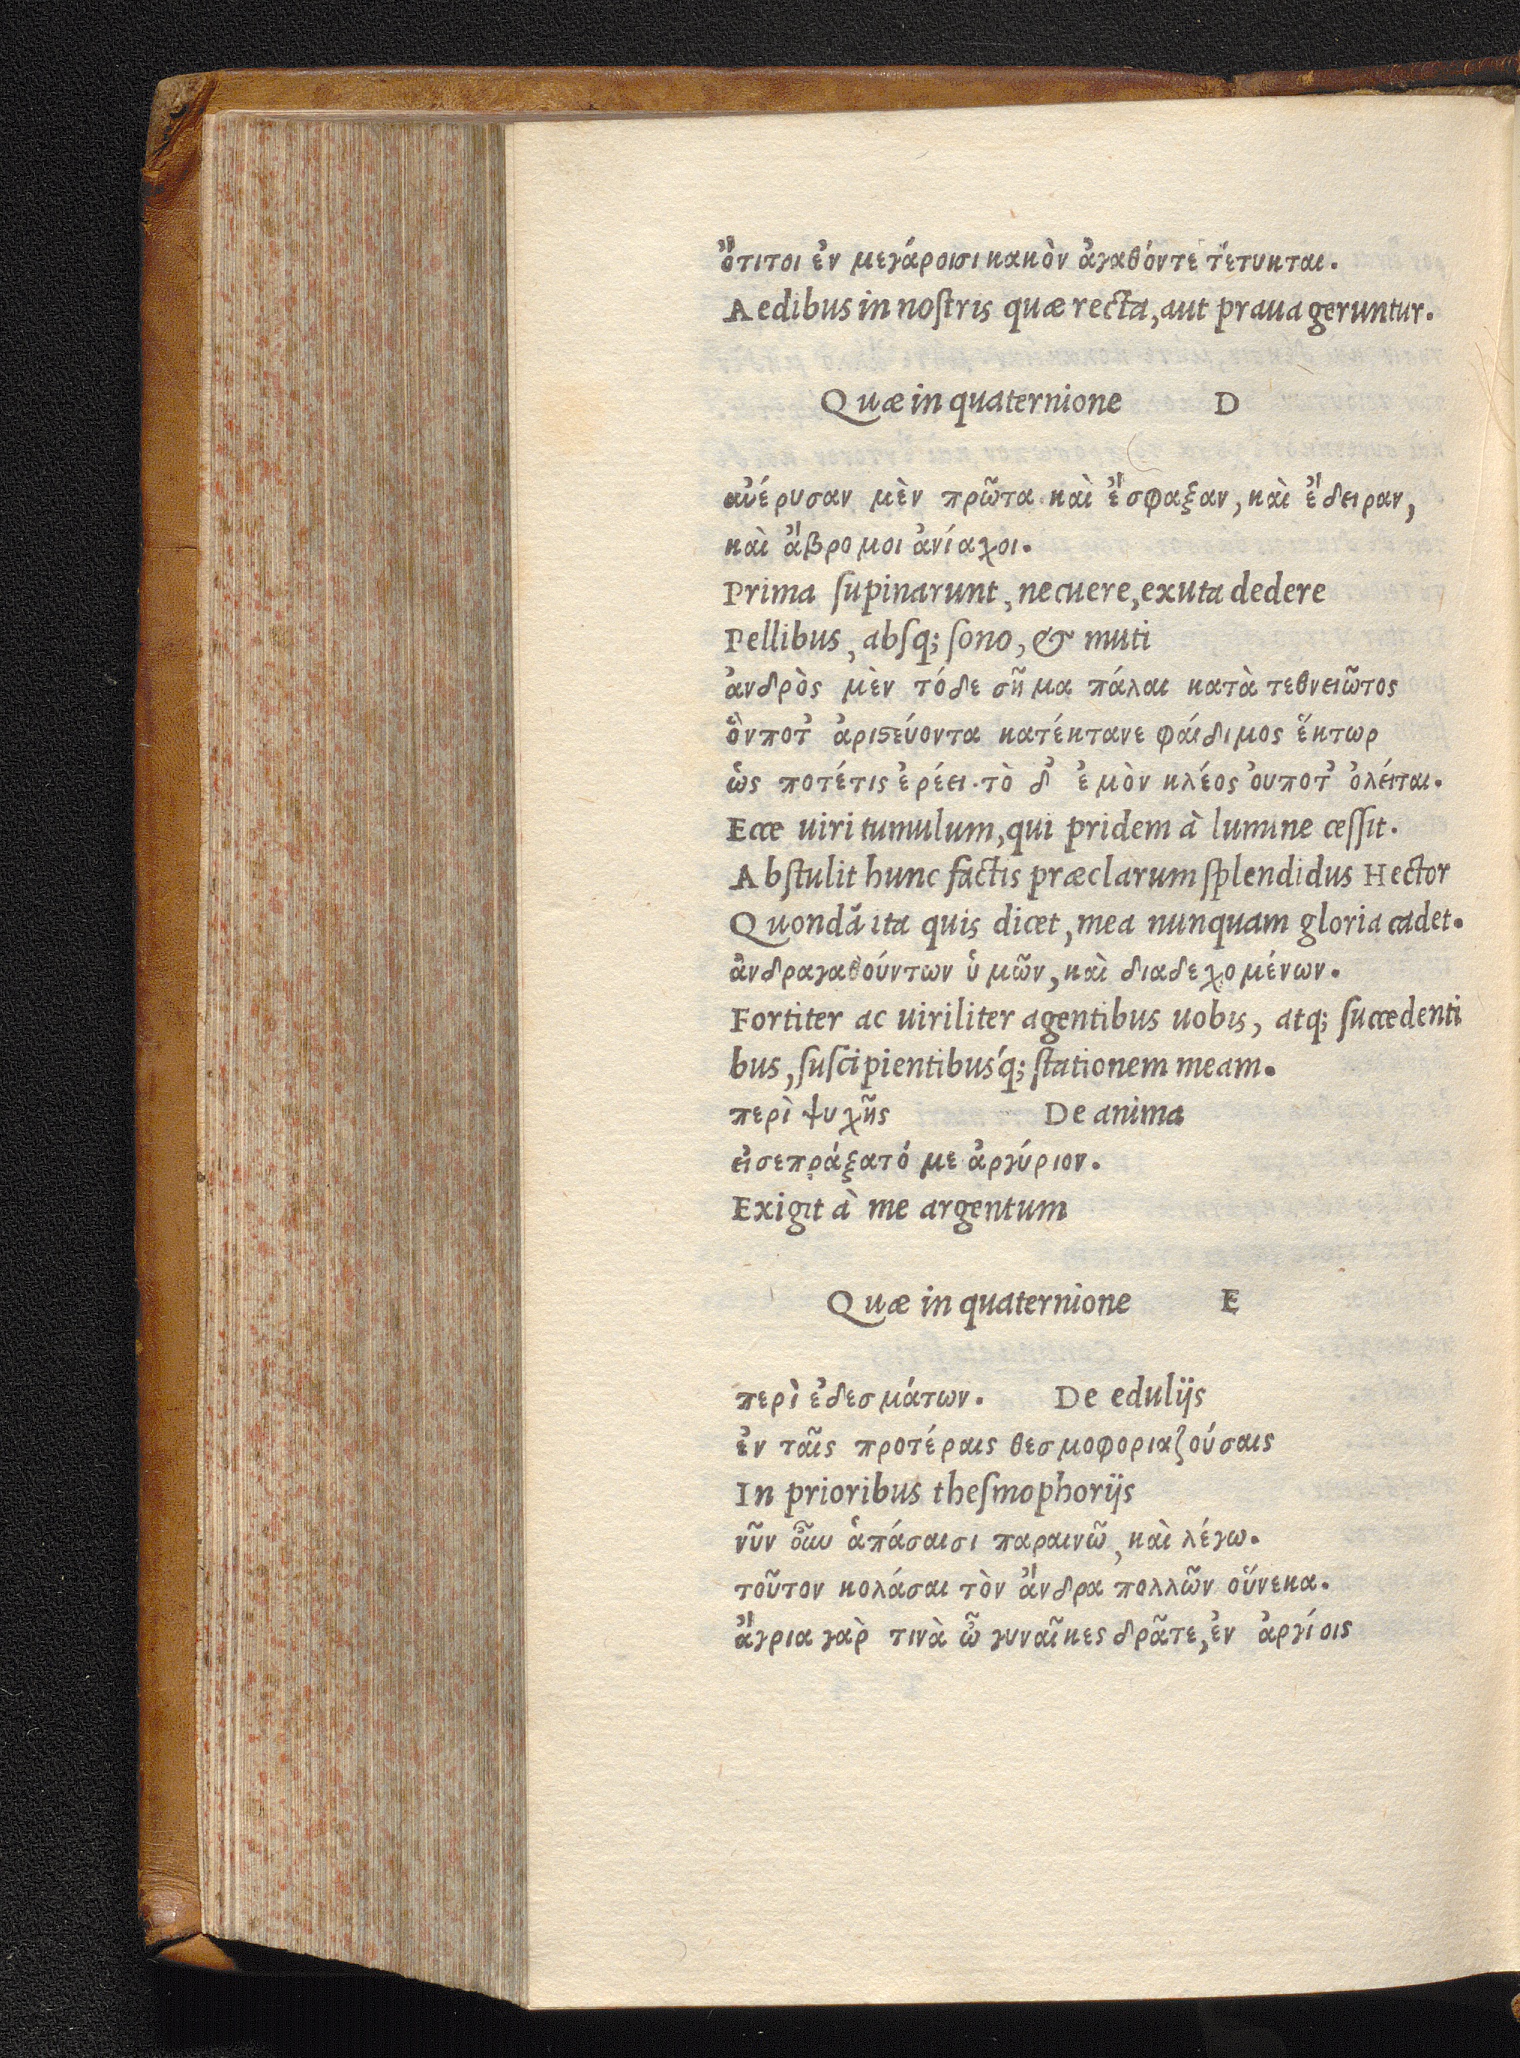 ὅτιτοι ἐν μεγάροισι κακὸν ἀγαθόντε τέτυκται.
Aedibus in noſtris quæ recta, aut praua geruntur.
Quæ in quaternione D
αὐέρυσαν μὲν πρῶτα καὶ ἔσφαξαν, καὶ ἔδειραν,
καὶ ἄβρομοι ἀνίαχοι.
Prima ſupinarunt, necuere, exuta dedere
Pellibus, abſq; ſono, & muti
ἀνδρὸς μὲν τόδε σῆμα πάλαι κατὰ τεθνειῶτος
ὃνποτ᾽ ἀριϛεύοντα κατέκτανε φαίδιμος ἕκτωρ
ὥς ποτέτις ἐρέει. τὸ δ᾽ ἐμὸν κλέος ὀυποτ᾽ ὀλεῖται.
Ecce uiri tumulum, qui pridem à lumine ceſſit.
Abſtulit hunc factis præclarum ſplendidus Hector
Quondã ita quis dicet, mea nunquam gloria cadet.
ἀνδραγαθούντων ὑμῶν, καὶ διαδεχομένων.
Fortiter ac uiriliter agentibus uobis, atq; ſuccedenti
bus, ſuſcipientibuśq; ſtationem meam.
περὶ ψυχῆς De anima
εἰσεπράξατό με ἀργύριον.
Exigit à me argentum
Quæ in quaternione E
περὶ ἐδεσμάτων. De edulijs
ἐν ταῖς προτέραις θεσμοφοριαζούσαις
In prioribus theſmophorijs
νῦν οὖν ἁπάσαισι παραινῶ, καὶ λέγω.
τοῦτον κολάσαι τὸν ἄνδρα πολλῶν οὕνεκα.
ἄγρια γὰρ τινὰ ὦ γυναῖκες δρᾶτε, ἐν ἀργίοις